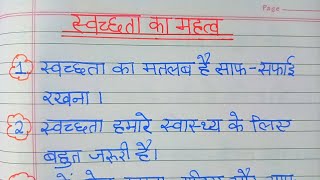 Page
स्वच्छता का महत्व
1 स्वच्छता का मतलब है साफ-सफाई
रखना ।
2 स्वच्छता हमारे स्वास्थ्य के लिए
बहुत जरूरी है।